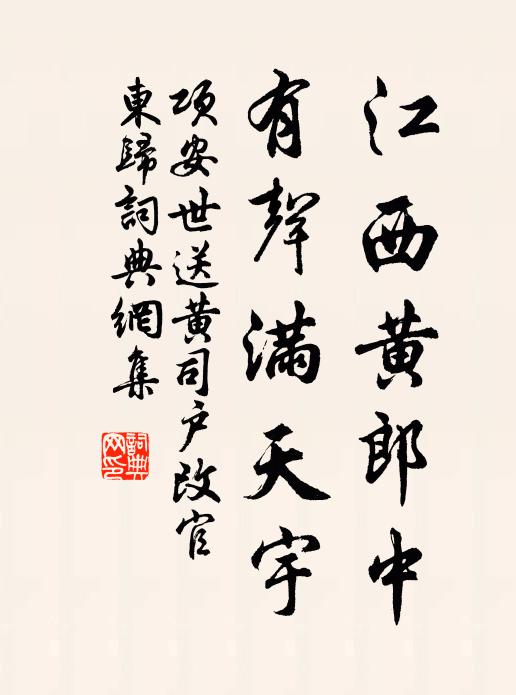 江西黄郎中
有聲滿天宇
項安世送黄司戶改官
東歸詞典網集
詞典網印